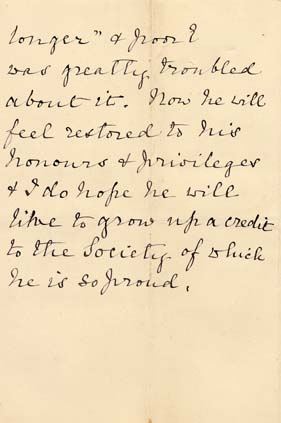 longer" & poor E
was greatly troubled
about it. Now he will
feel restored to his
honours & privileges
& I do hope he will
live to grow up a credit
to the Society of which
he is so proud.